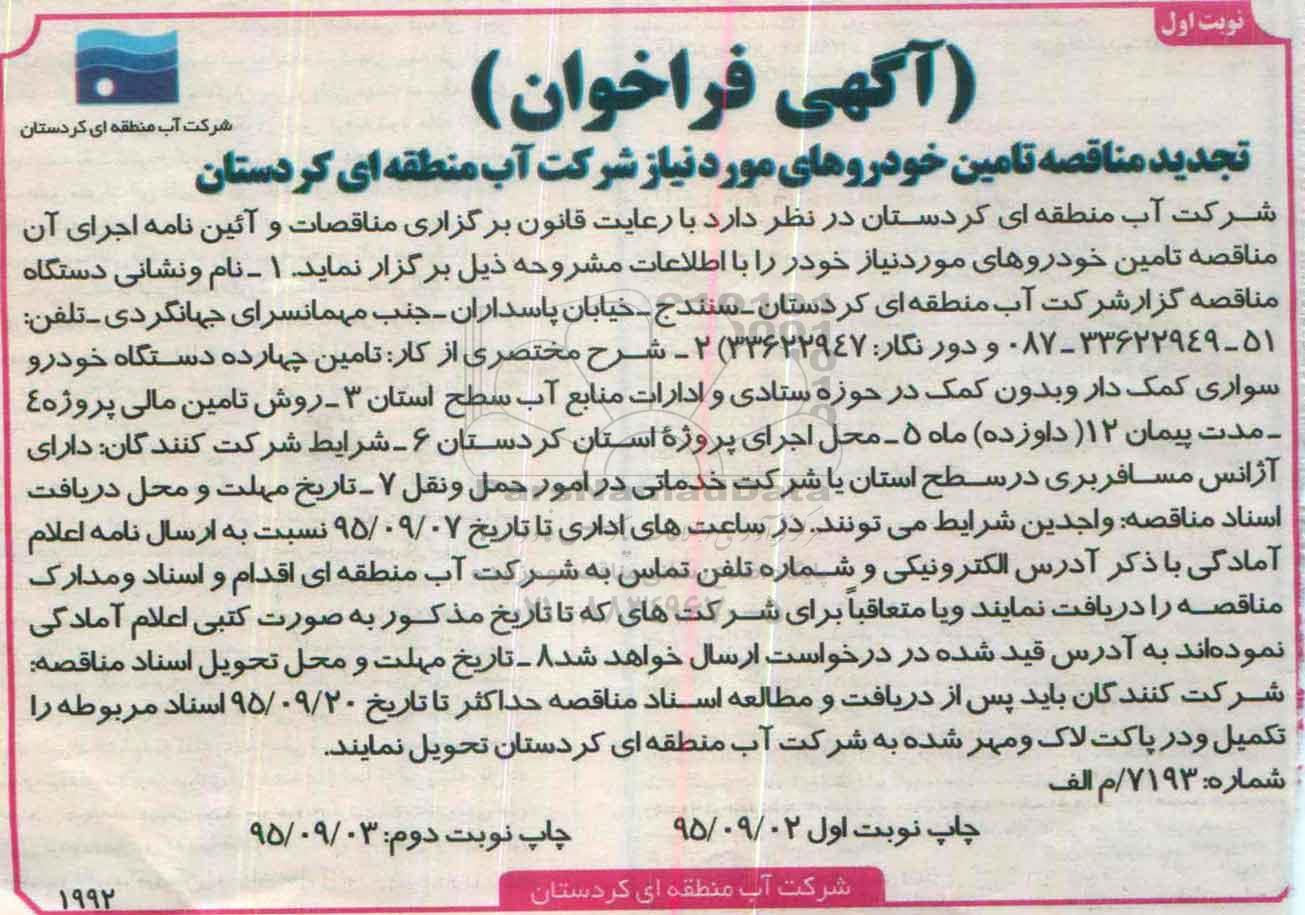 نوبت اول
(آگهی فراخوان)
شرکت آب منطقه ای کردستان
تجدید مناقصه تامین خودروهای مورد نیاز شرکت آب منطقه ای کردستان
شرکت آب منطقه ای کردستان در نظر دارد با رعایت قانون برگزاری مناقصات و آئین نامه اجرای آن
مناقصه تامین خودروهای موردنیاز خودر را با اطلاعات مشروحه ذیل برگزار نماید. ۱ ـ نام ونشانی دستگاه
مناقصه گزارشرکت آب منطقه ای کردستان ـ سنندج ـ خیابان پاسداران ـ جنب مهمانسرای جهانگردی ـ تلفن:
۵۱ ـ ۳۳۶۲۲۹٤۹ ـ ۰۸۷ و دور نگار: ۳۳۶۲۲۹٤۷) ۲ ـ شرح مختصری از کار: تامین چهارده دستگاه خودرو
سواری کمک دار وبدون کمک در حوزه ستادی و ادارات منابع آب سطح استان ۳ ـ روش تامین مالی پروژه٤
ـ مدت پیمان ۱۲( داوزده) ماه ۵ ـ محل اجرای پروژهٔ استان کردستان ۶ ـ شرایط شرکت کنندگان: دارای
آژانس مسافربری درسطح استان یا شرکت خدماتی در امور حمل ونقل ۷ ـ تاریخ مهلت و محل دریافت
اسناد مناقصه: واجدین شرایط می تونند. در ساعت های اداری تا تاریخ ۹۵/۰۹/۰۷ نسبت به ارسال نامه اعلام
آمادگی با ذکر آدرس الکترونیکی و شماره تلفن تماس به شرکت آب منطقه ای اقدام و اسناد ومدارک
مناقصه را دریافت نمایند ویا متعاقباً برای شرکت های که تا تاریخ مذکور به صورت کتبی اعلام آمادگی
نموده‌اند به آدرس قید شده در درخواست ارسال خواهد شد۸ ـ تاریخ مهلت و محل تحویل اسناد مناقصه:
شرکت کنندگان باید پس از دریافت و مطالعه اسناد مناقصه حداکثر تا تاریخ ۹۵/۰۹/۲۰ اسناد مربوطه را
تکمیل ودر پاکت لاک ومهر شده به شرکت آب منطقه ای کردستان تحویل نمایند.
شماره: ۷۱۹۳/م الف
چاپ نوبت اول ۹۵/۰۹/۰۲ چاپ نوبت دوم: ۹۵/۰۹/۰۳
شرکت آب منطقه ای کردستان
۱۹۹۲